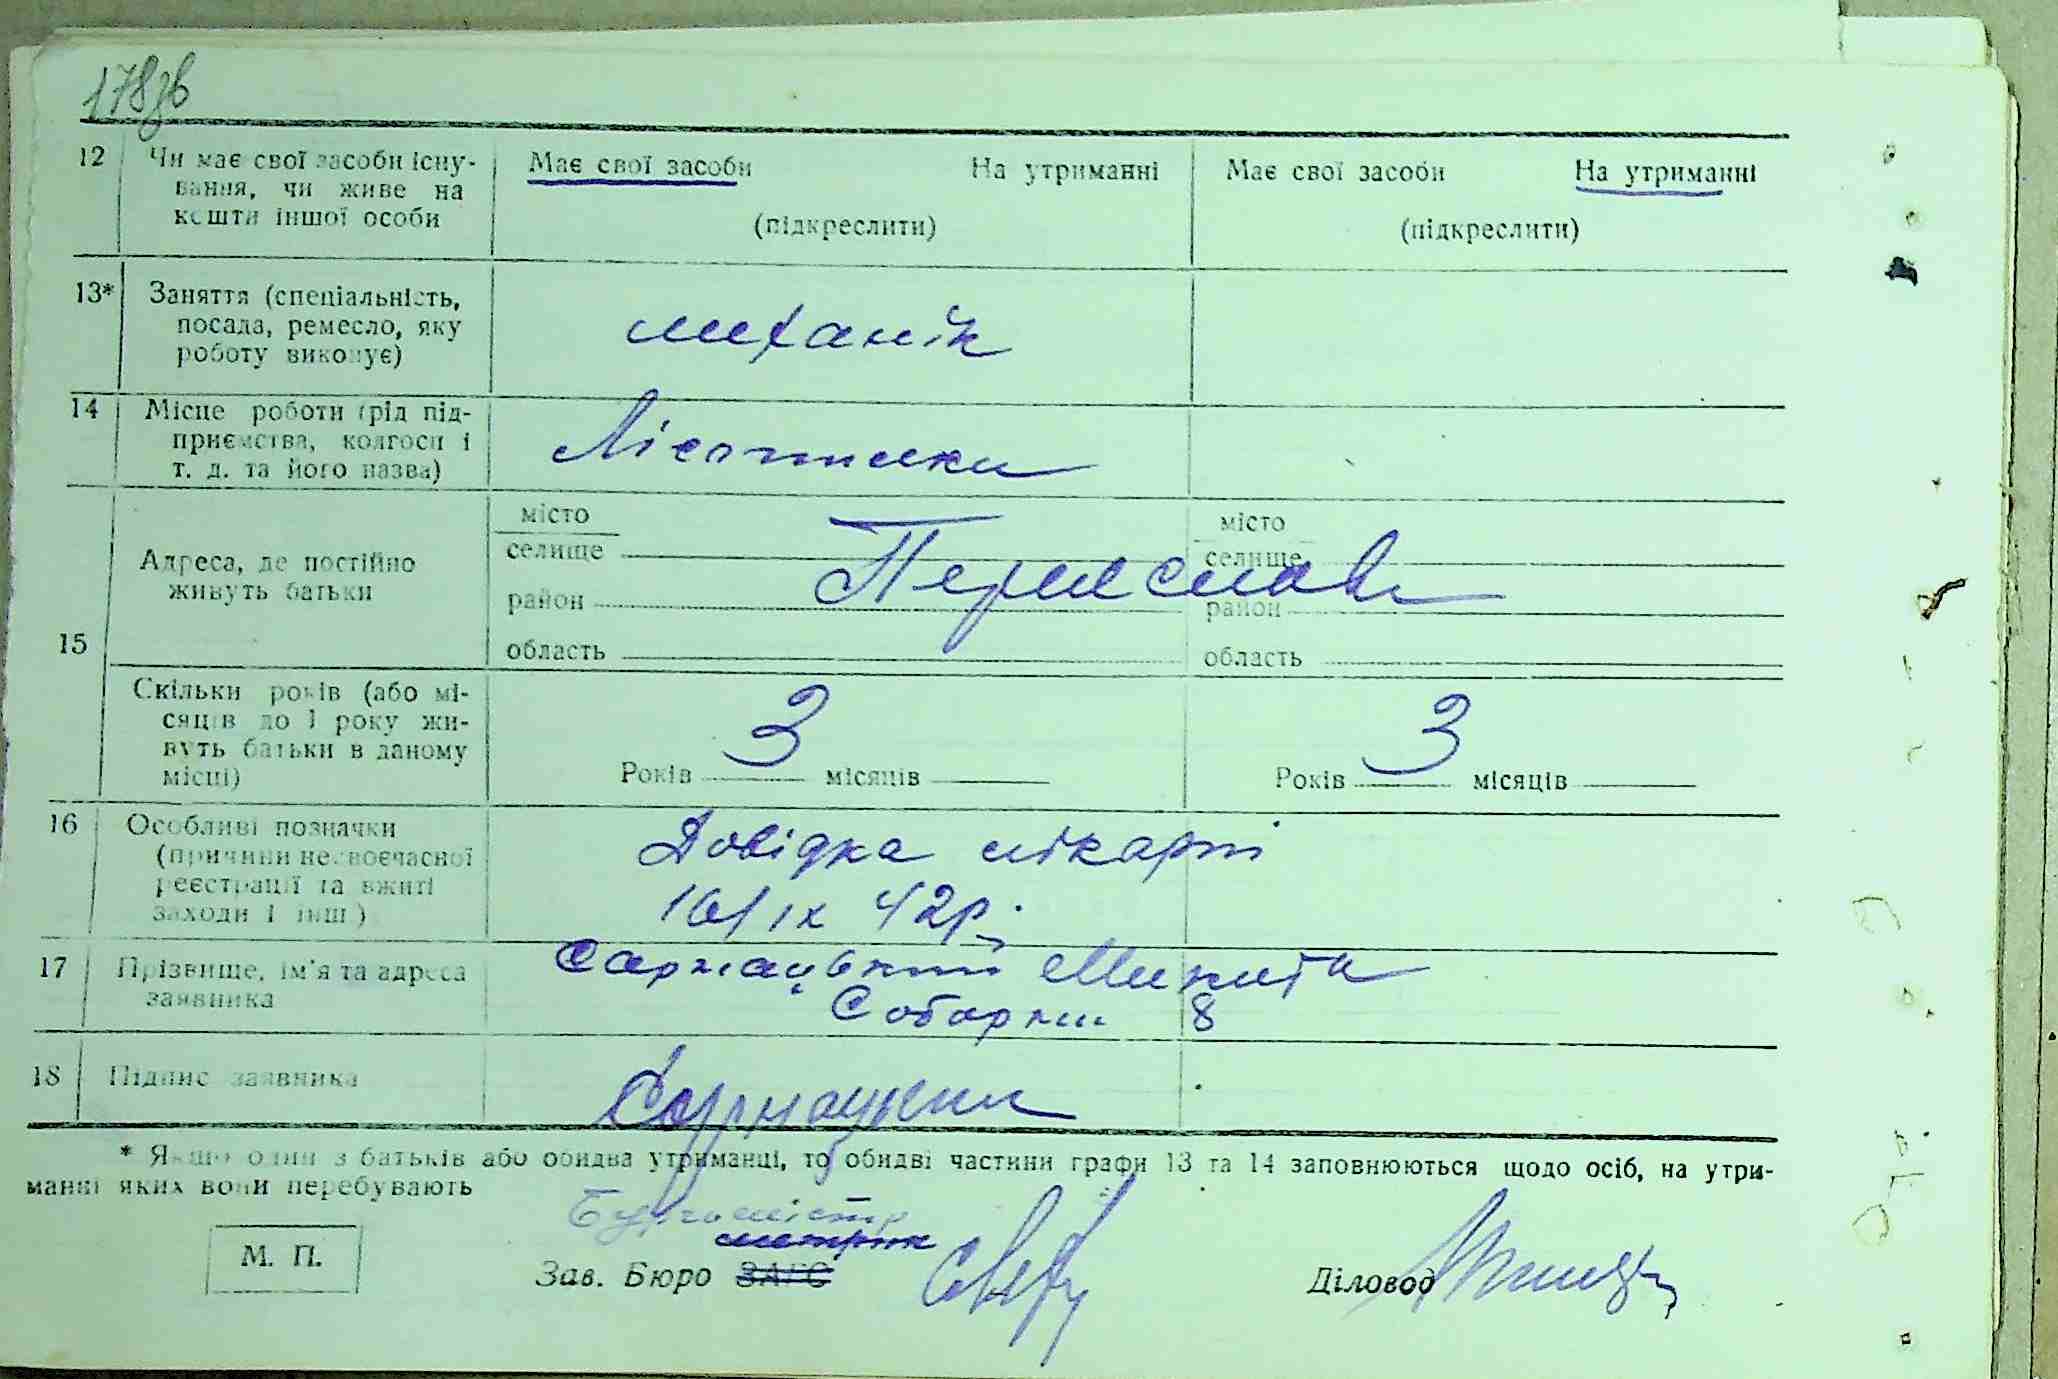 178зв
12 Чи має свої засоби існу- Має свої засоби На утриманні Має свої засоби На утриманні
вання, чи живе на
кошти іншої особи (підкреслити) (підкреслити)
13* Заняття (спеціальність,
посада, ремесло, яку механік
роботу виконує)
14 Місце роботи (рід під-
приємства, колгосп і
т. д. та його назва)
місто місто
селище селище
Адреса, де постійно Переяслав
живуть батьки район район
15
область область
Скільки років (або мі-
сяців до 1 року жи-
вуть батьки в даному 3 3
місці) Років місяців Років місяців
16 Особливі позначки Довідка лікарні
(причини несвоєчасної
реєстрації та вжиті 16/IX 42р.
заходи і інш.)
17 Прізвище, ім'я та адреса Сарнацький Микита
заявника Соборний 8
18 Підпис заявника Сарнацький
* Якщо один з батьків або обидва утриманці, то обидві частини графи 13 та 14 заповнюються щодо осіб, на утри-
манні яких вони перебувають
Бургомістр
метрик
М. П. Зав. Бюро ЗАГС Діловод